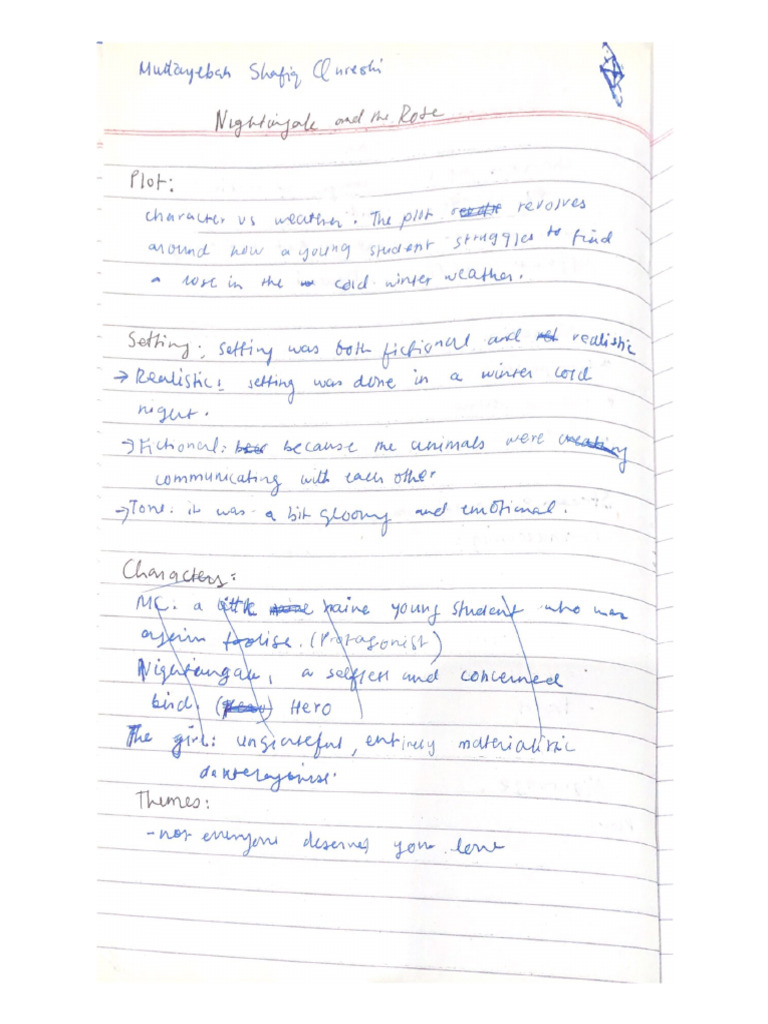 Muttayebah Shafiq Qureshi
Nightingale and the Rose
Plot:
character vs weather. The plot revolves
around how a young student struggles to find
a rose in the cold winter weather.
Setting: setting was both fictional and realistic
→ Realistic: setting was done in a winter cold
night.
→ Fictional: because the animals were
communicating with each other
→ Tone: it was a bit gloomy and emotional.
Characters:
MC: a naive young student who was
(Protagonist)
Nightangale, a selfless and concerned
bird. Hero
The girl: ungrateful, entirely materialistic
Themes:
- not everyone deserves your love